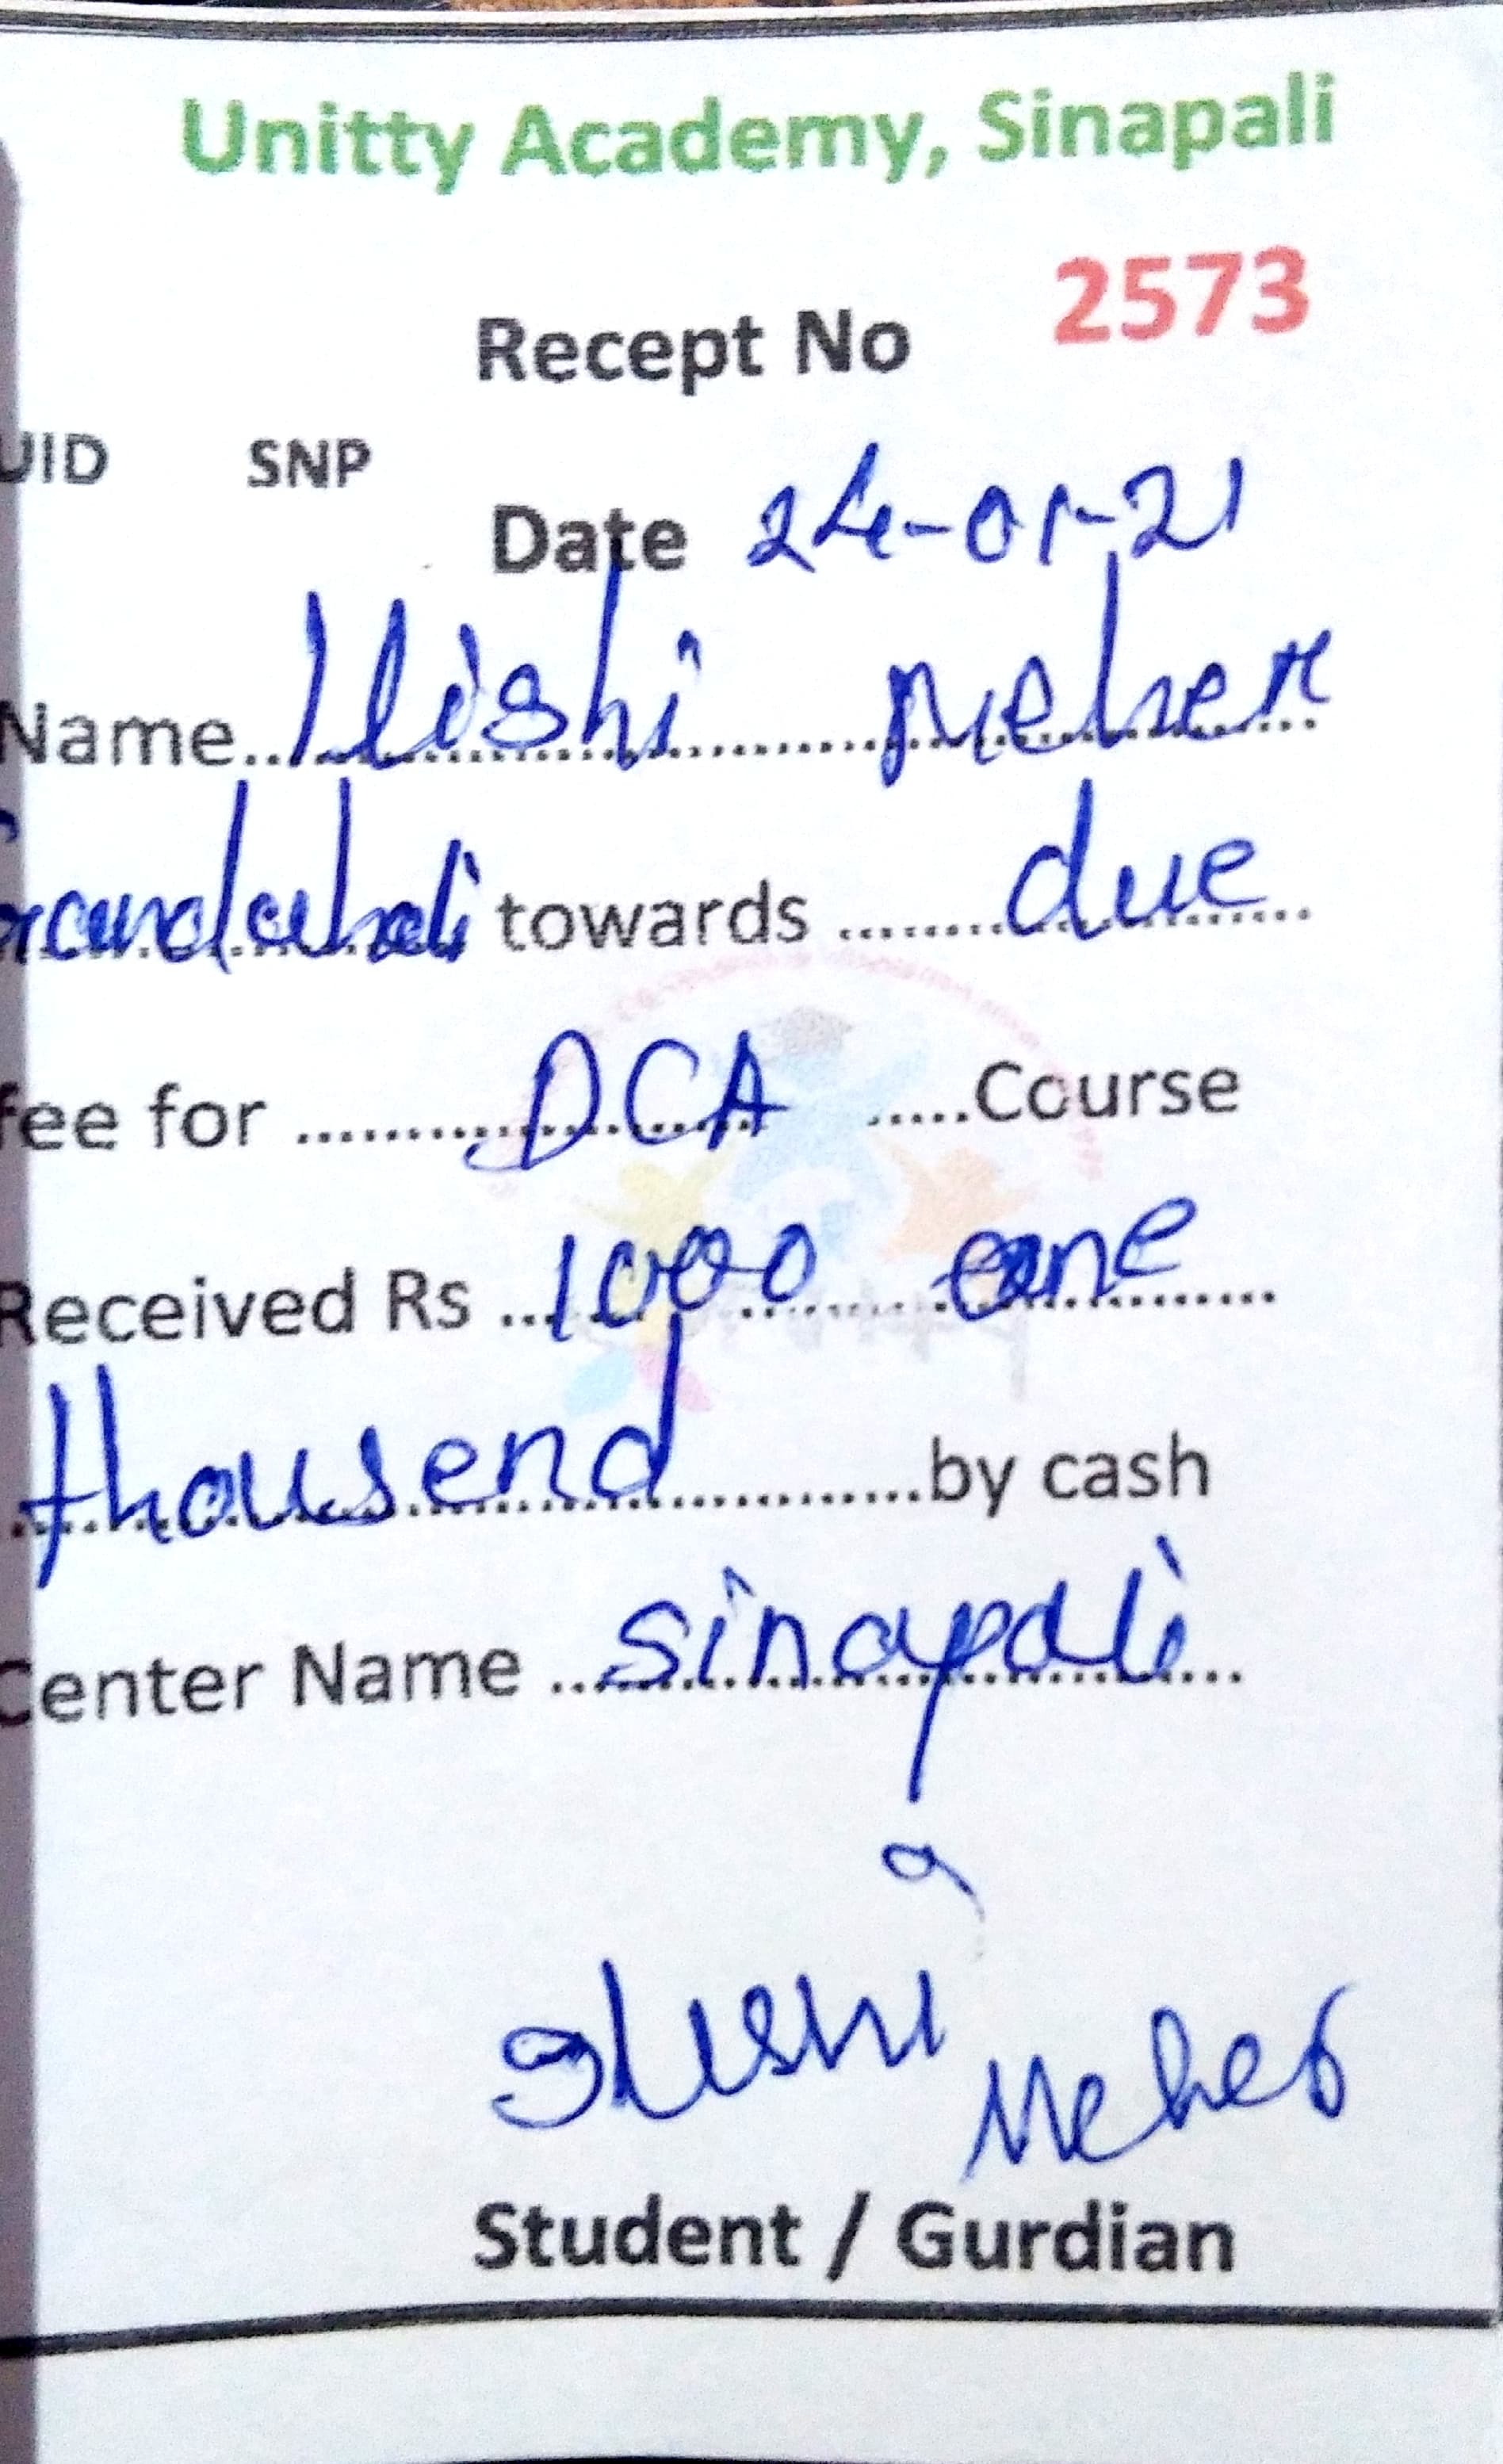 Unitty Academy, Sinapali
2573
Recept No
UID SNP
Date 24-01-21
Name Ilishi Meher
towards due
fee for DCA Course
Received Rs 1000 one
thousend by cash
Center Name sinapali
Ilishi Meher
Student / Gurdian